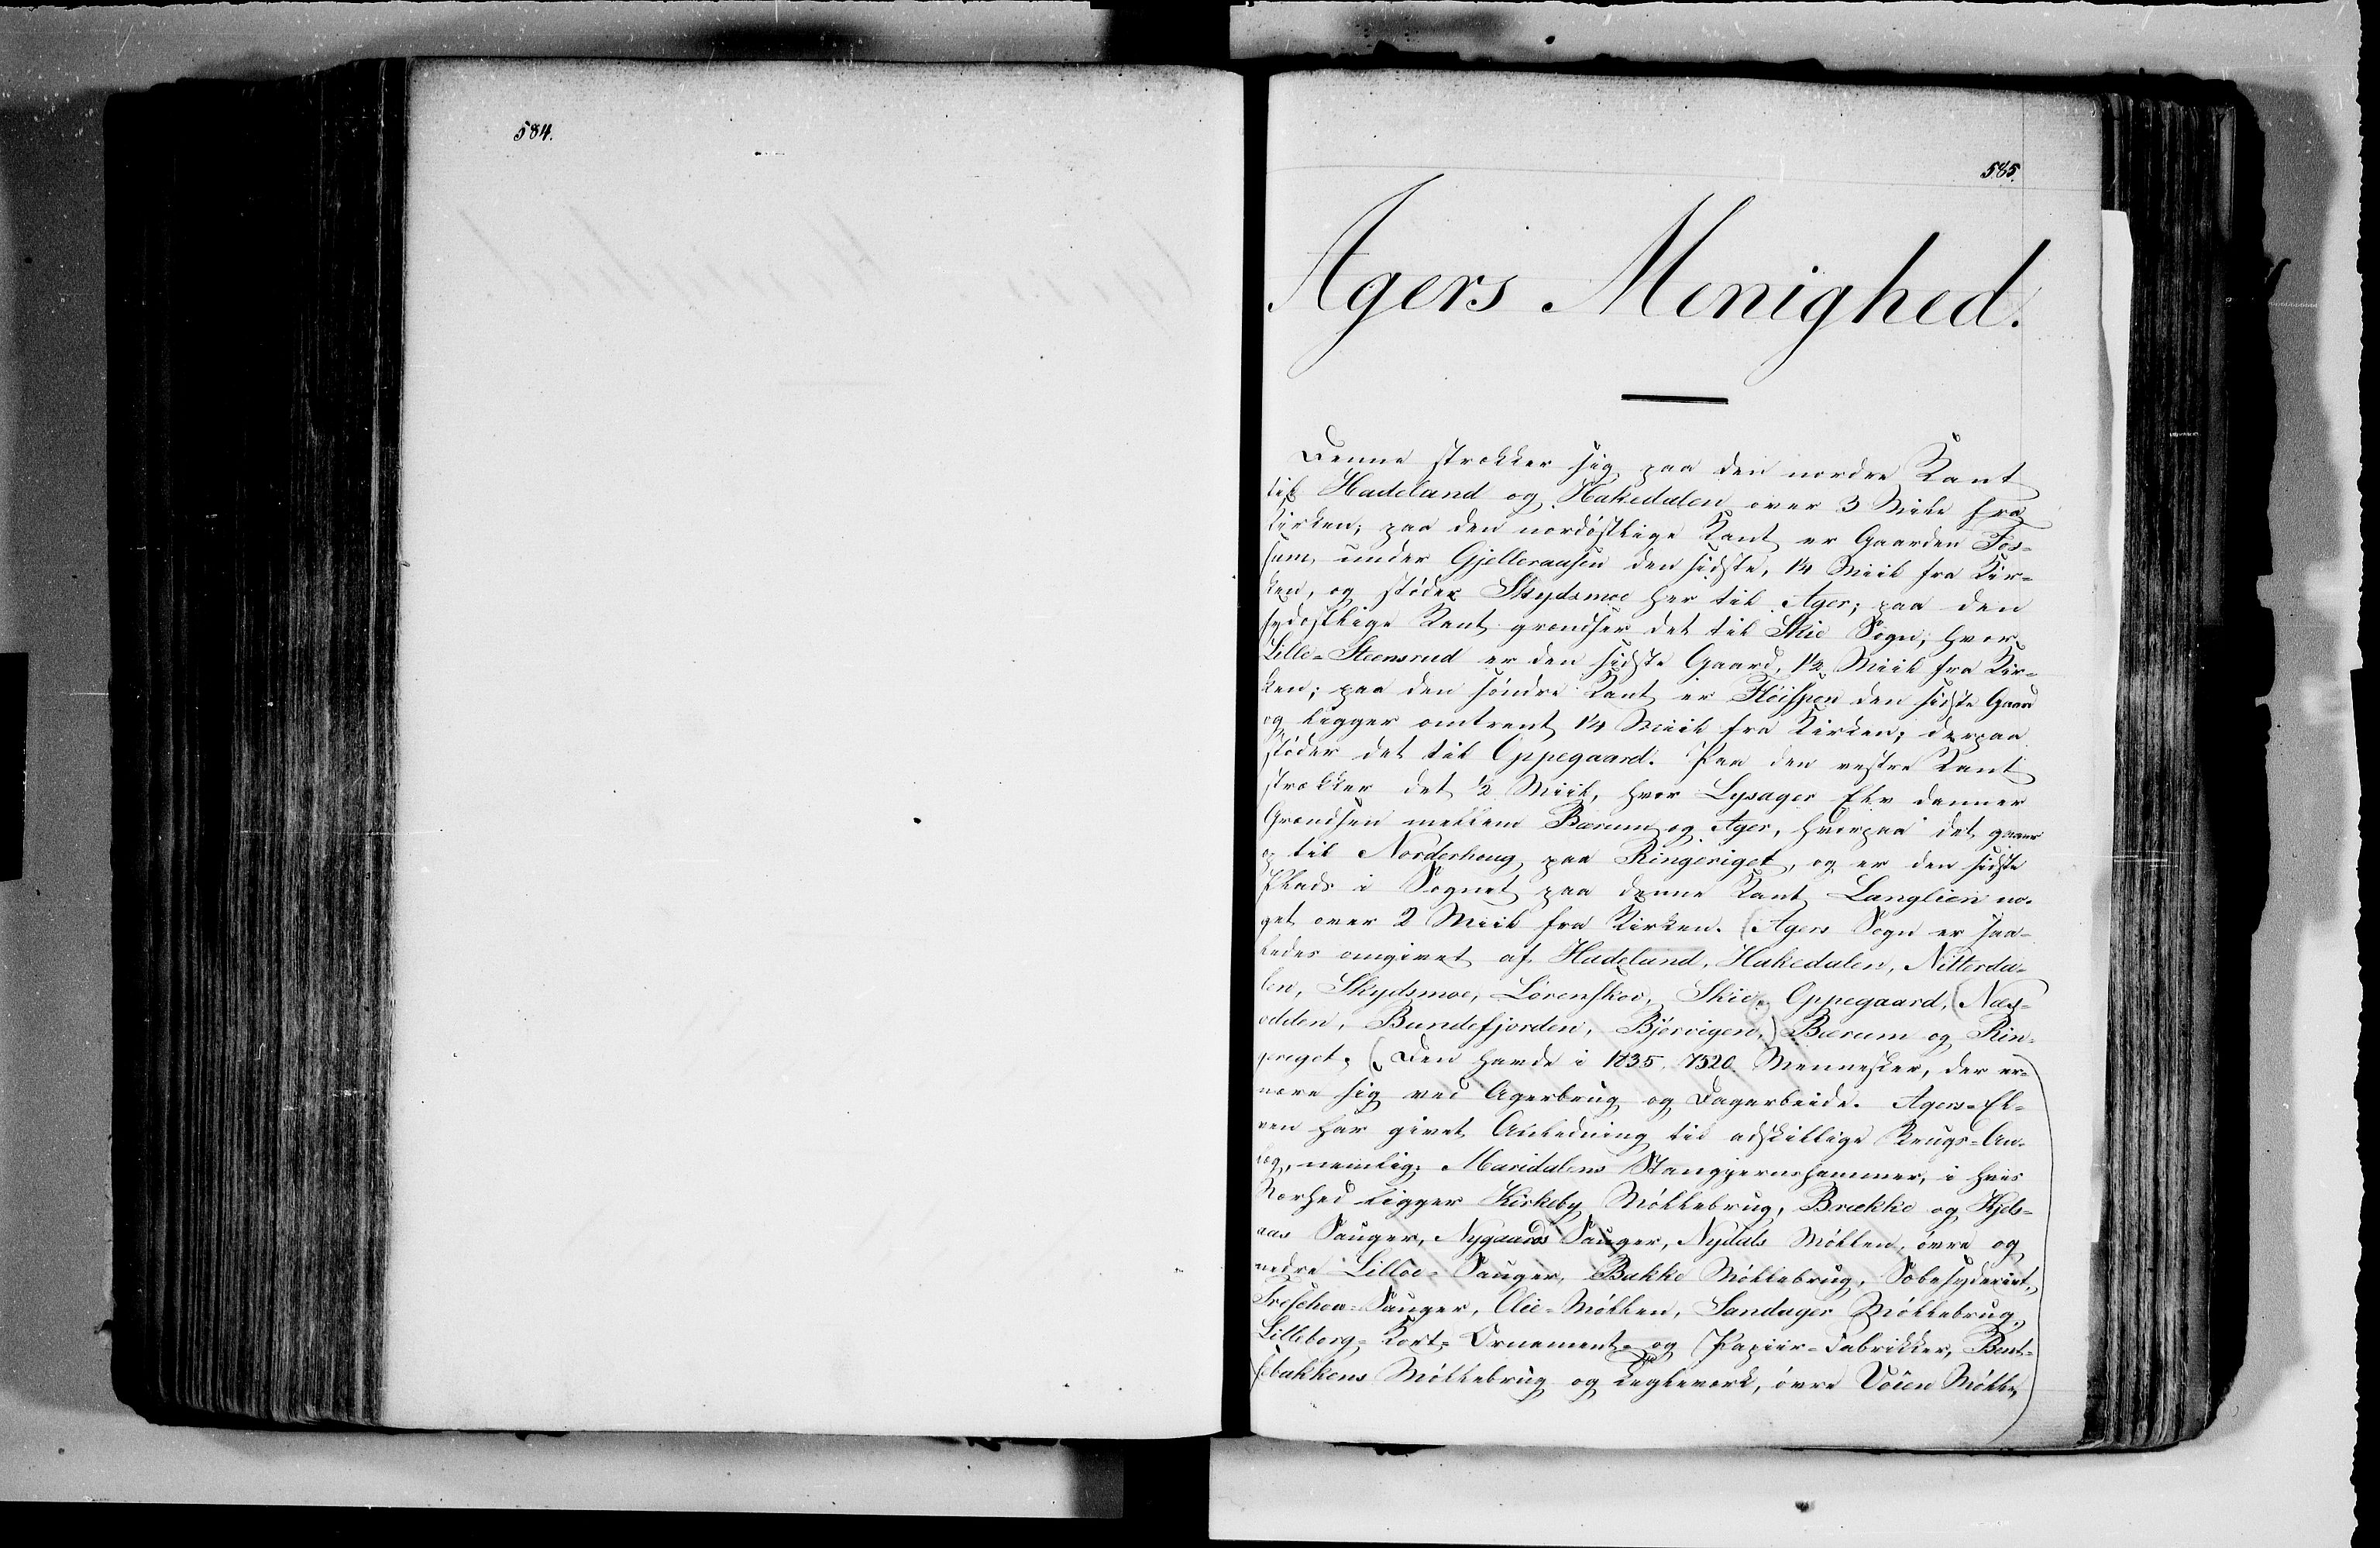 584.
585.
Agers Menighed.
Denne strækker sig paa den nordre Kant
til Hadeland og Hakedalen over 3 Mile fra
Kirken; paa den nordöstlige Kant er Gaarden Fos-
sum under Gjelleraasen den sidste, 1¼ Miil fra Kir-
ken, og stöder Skydsmoe her til Ager; paa den
sydöstlige Kant grændser det til Skie Sogn, hvor
Lille-Steensrud er den sidste Gaard, 1½ Miil fra Kir-
ken; paa den söndre Kant er Fleispen den sidste Gaard
og ligger omtrent 1¼ Miil fra Kirken; derpaa
stöder det til Oppegaard. Paa den vestre Kant
strækker det ½ Miil, hvor Lysager Elv danner
Grændsen mellem Bærum og Ager, hvorpaa det gaaer
op til Norderhoug paa Ringeriget, og er den sidste
Plads i Sognet paa denne Kant Langlien no-
get over 2 Miil fra Kirken. (Agers Sogn er saa-
ledes omgivet af Hadeland, Hakedalen, Nitterda-
len, Skydsmoe, Lörenskov, Skie, Oppegaard, (Næs-
odden, Bundefjorden, Björvigen,) Bærum og Rin-
geriget. (Den havde i 1835, 7520 Mennesker, der er-
nære sig ved Agerbrug og Dagarbeide. Agers-El-
ven har givet Anledning til adskillige Brugs-An-
læg, nemlig: Maridalens Stangjernshammer, i hvis
Nærhed ligger Kirkeby Möllebrug, Brække og Kjels-
aas Sauger, Nygaards Sauger, Nydals Möllen, övre og
nedre Lilloe-Sauger, Bakke Möllebrug, Sæbesyderiet,
Treschow-Sauger, Olie-Möllen, Sandager Möllebrug,
Lilleborg-Kort-Ornament- og Papiir-Fabrikker, Bent-
sebakkens Möllebrug og Teglværk, övre Vöien Mölle,